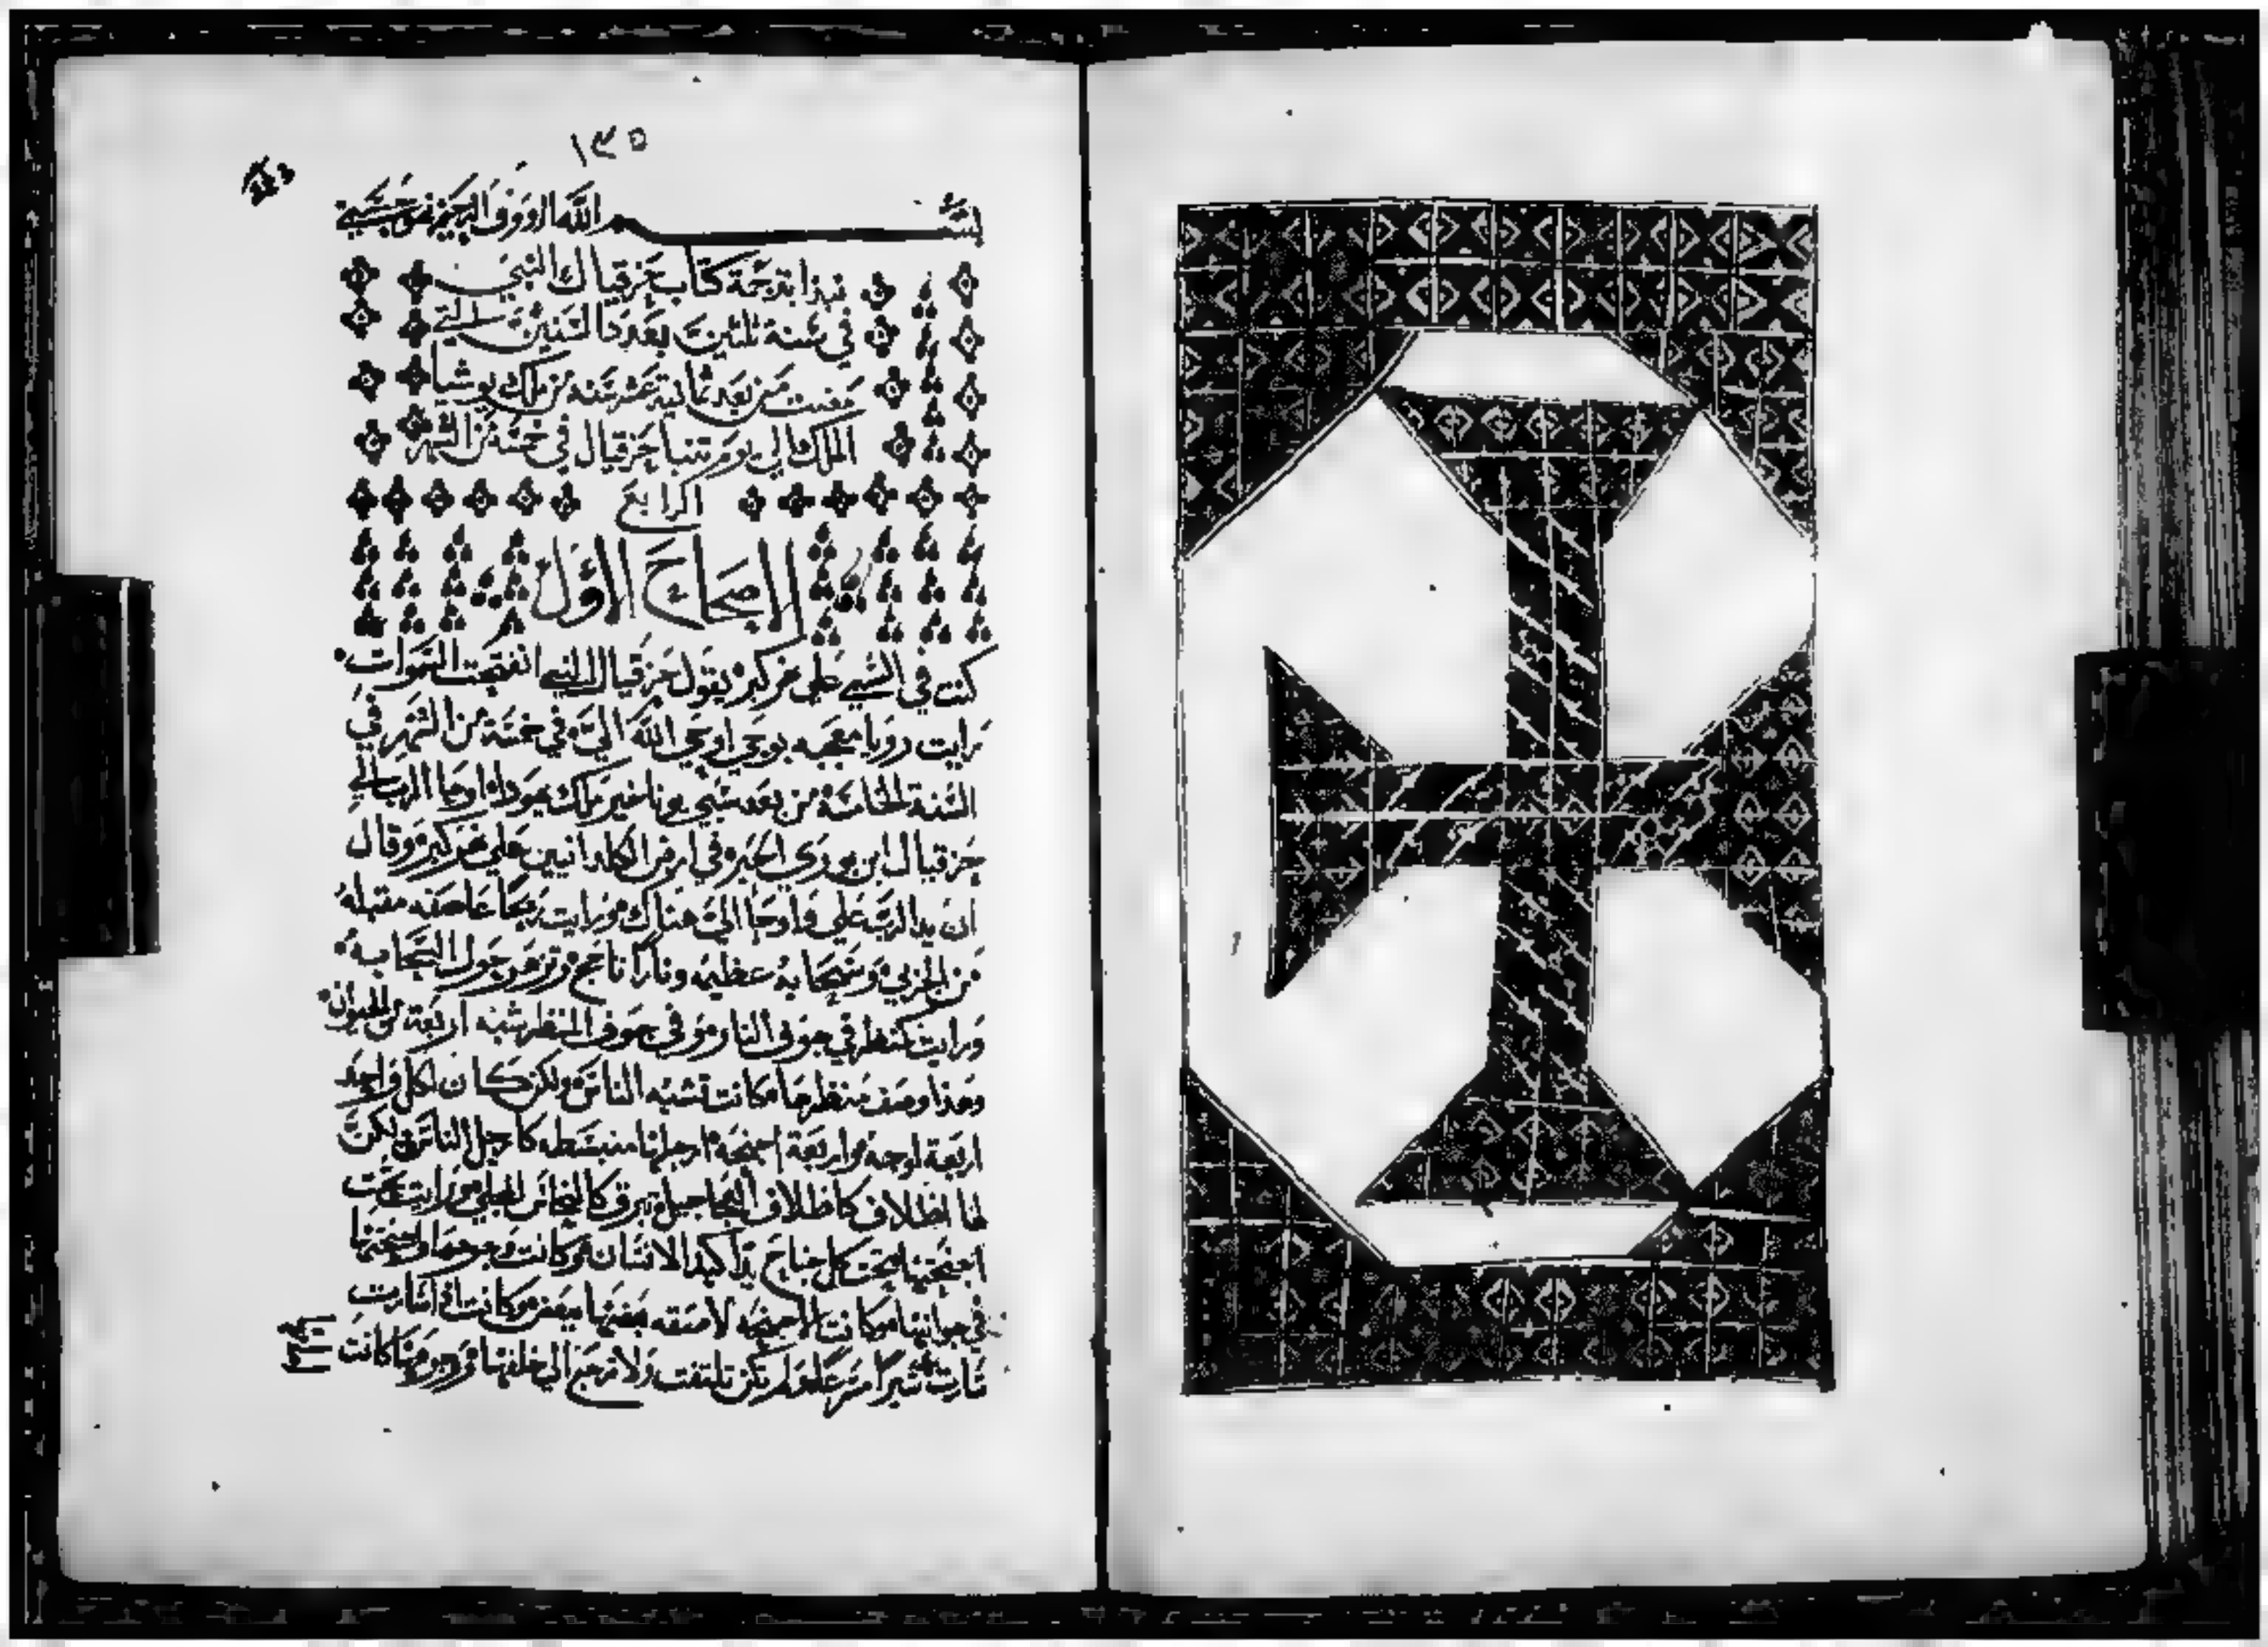 ١٣٥
بسم الله الرووف الرحيم نور حسبي
نبدا بترجمة كتاب حزقيال النبي
في سنة ثلثين بعد السنين التي
مضت من بعد ثمانية عشر سنه من ملك يوشيا
الملك الي يوم تنبا حزقيال في خمسة من الشهر
الرابع
الاصحاح الاول
كنت في السبي علي نهر كبر يقول حزقيال النبي انفتحت السموات
ورايت رويا معجبه بوحي اوحي الله الي في خمسة من الشهر في
السنة الخامسة من بعد سبي يوناخير ملك يهودا اوحا الرب الي
حزقيال ابن بوري الحبر في ارض الكلدانيين علي نهر كبر وقال
ان يد الرب علي واوحا الي هناك ورايت ريحا عاصفه مقبله
من الجربي وسحابه عظيمه ونارا تاجج وتزهر حول السحابه
ورايت كمنظر في جوف النار وفي جوف المنظر شبه اربعة من الحيوان
وهذا وصف منظرها كانت تشبه الناس ولكن كان لكل واحد
اربعة اوجه واربعة اجنحه ارجلها منبسطه كارجل الناس ولكن
لها اظلاف كاظلاف العجاجيل تبرق كالنحاس المجلي ورايت تحت
اجنحتها تحت كل جناح يدا كيد الانسان وكانت وجوهها واجنحتها
في جوانبها وكانت الاجنحه لاصقه بعضها ببعض وكانت اذا سارت
سارت سيرا مسرعا ولم تكن تلتفت ولا ترجع الي خلفها ووجوهها كانت